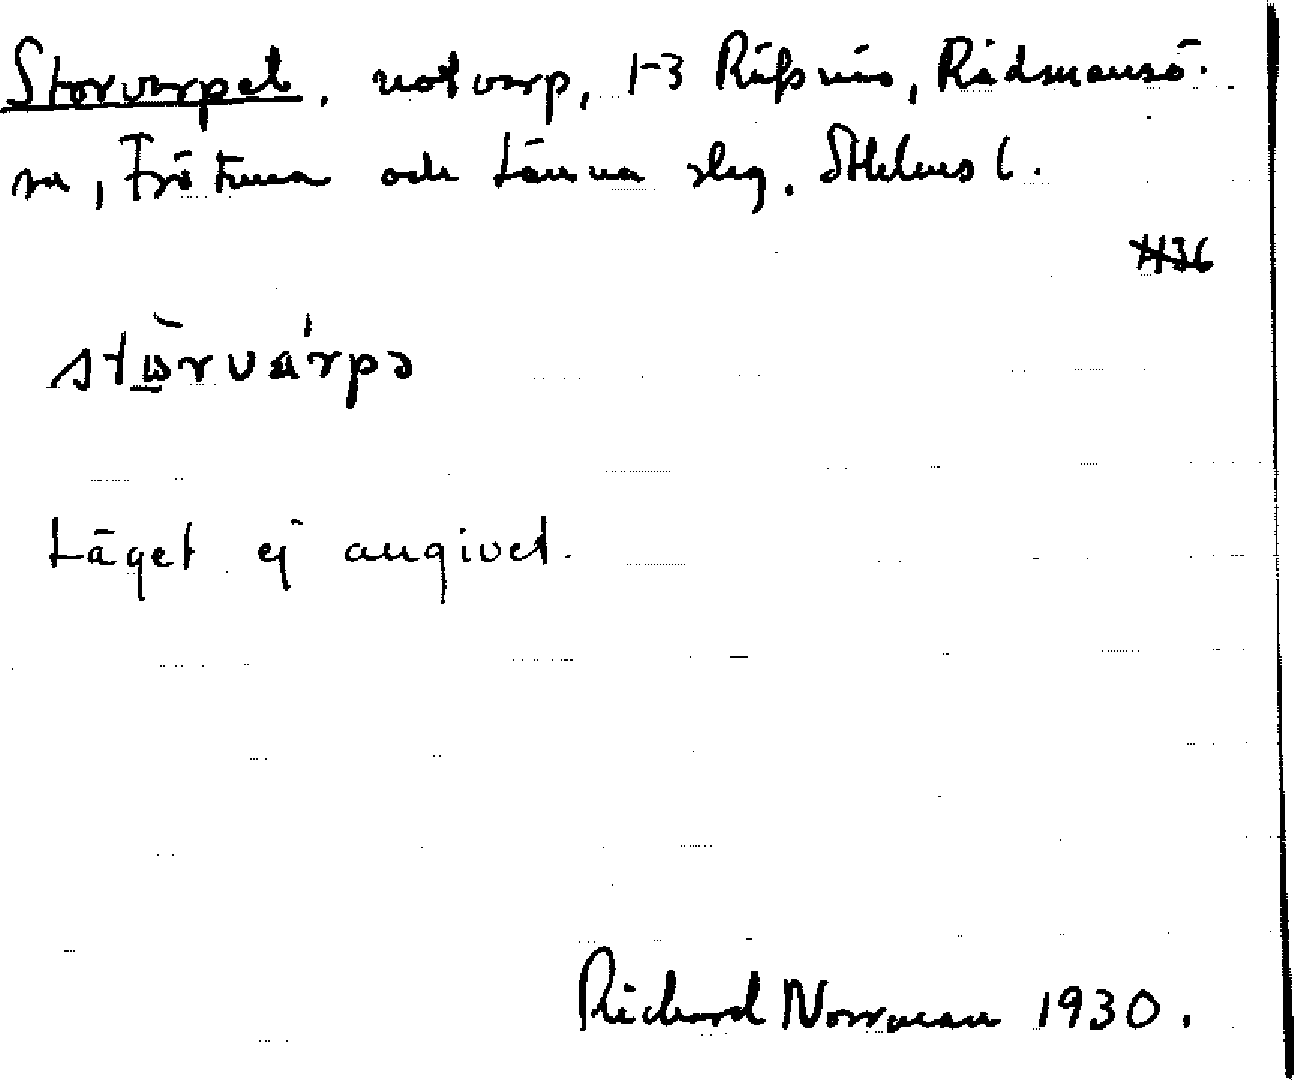 Storvarpet, notvarp, 1-3 Räfsnäs, Rådmansö
sn, Frötuna och Länna slag. Sthlms l.
stωrvarpə
Läget ej angivet.
Richard Norrman 1930.